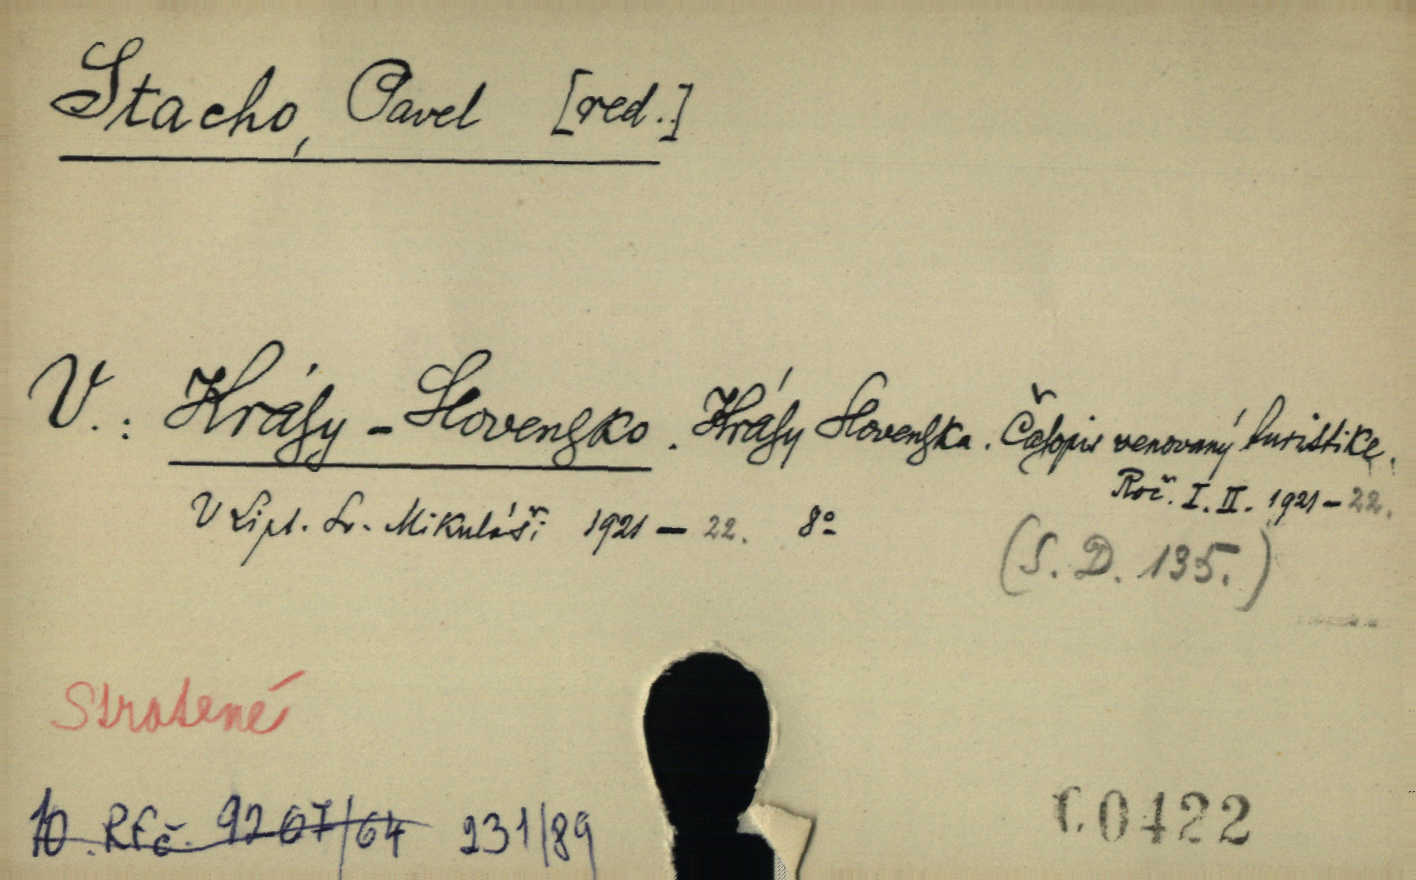 Stacho, Pavel [red.]
V.: Krásy-Slovensko. Krásy Slovenska. Časopis venovaný turistike.
Roč. I. II. 1921-22.
V Lipt. Sv. Mikuláši 1921-22. 8º
(S. D. 135.)
Stratené
10. RFč. 9267/64 231/89
C0422